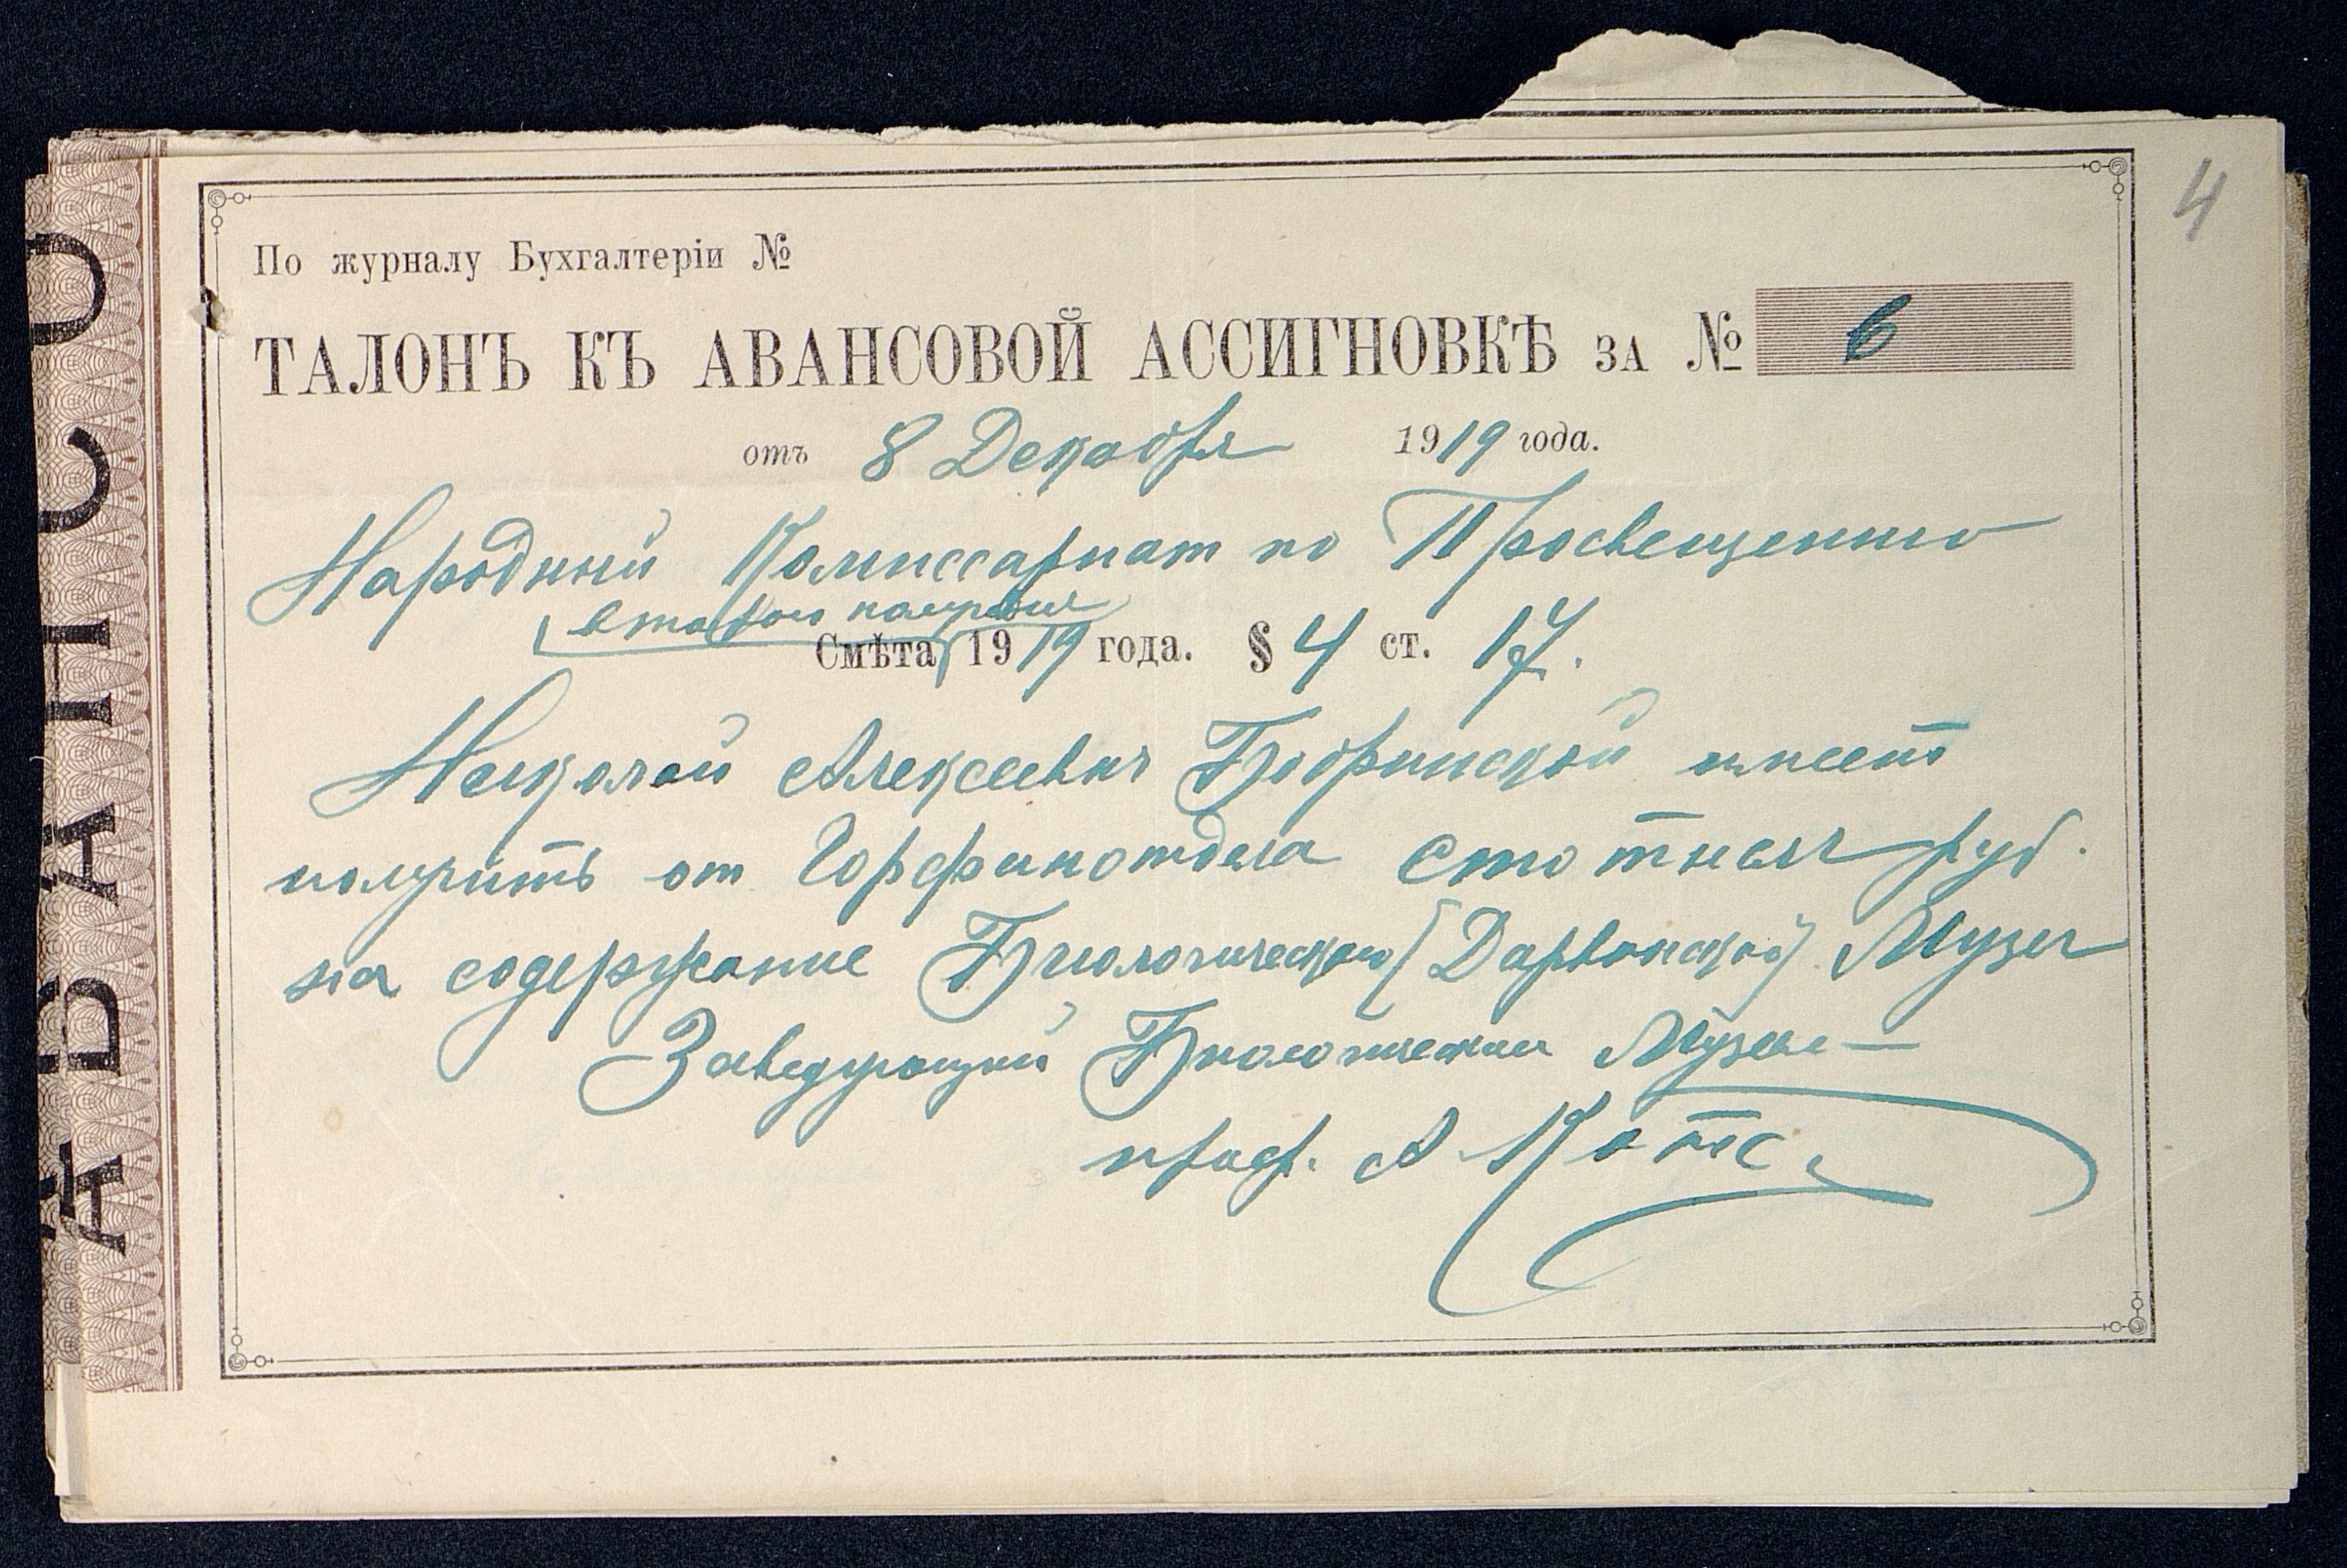 4
По журналу Бухгалтеріи №
ТАЛОНЪ КЪ АВАНСОВОЙ АССИГНОВКѢ ЗА № 6
отъ 8 Декабря 1919 года.
Народный Комиссариат по Просвещению
второго полугодия
Смѣта 1919 года. § 4 ст. 17.
Николай Алексеевич Бобринской имеет
получить от Горфинотдела сто тысяч руб.
на содержание Биологического (Дарвинского) Музея
Заведующий Биологическим Музеем
проф. А Котс.
АВАНСО